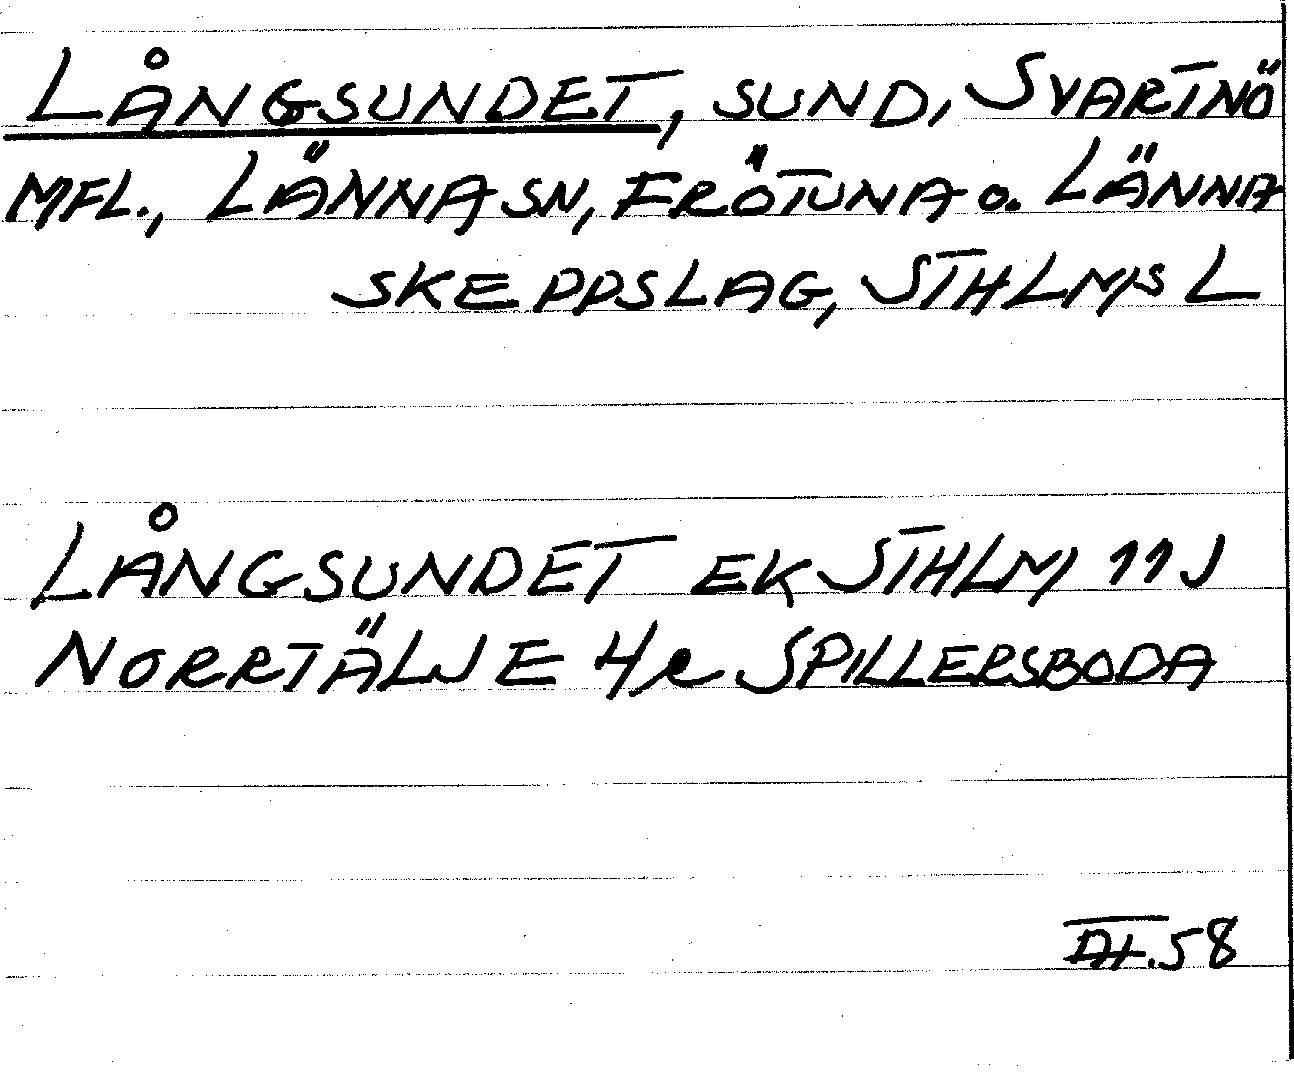 LÅNGSUNDET, SUND, SVARTNÖ
MFL., LÄNNA SN, FRÖTUNA o. LÄNNA
SKEPPSLAG, STHLMS L
LÅNGSUNDET EK STHLM 11 J
NORRTÄLJE 4 SPILLERSBODA
.58